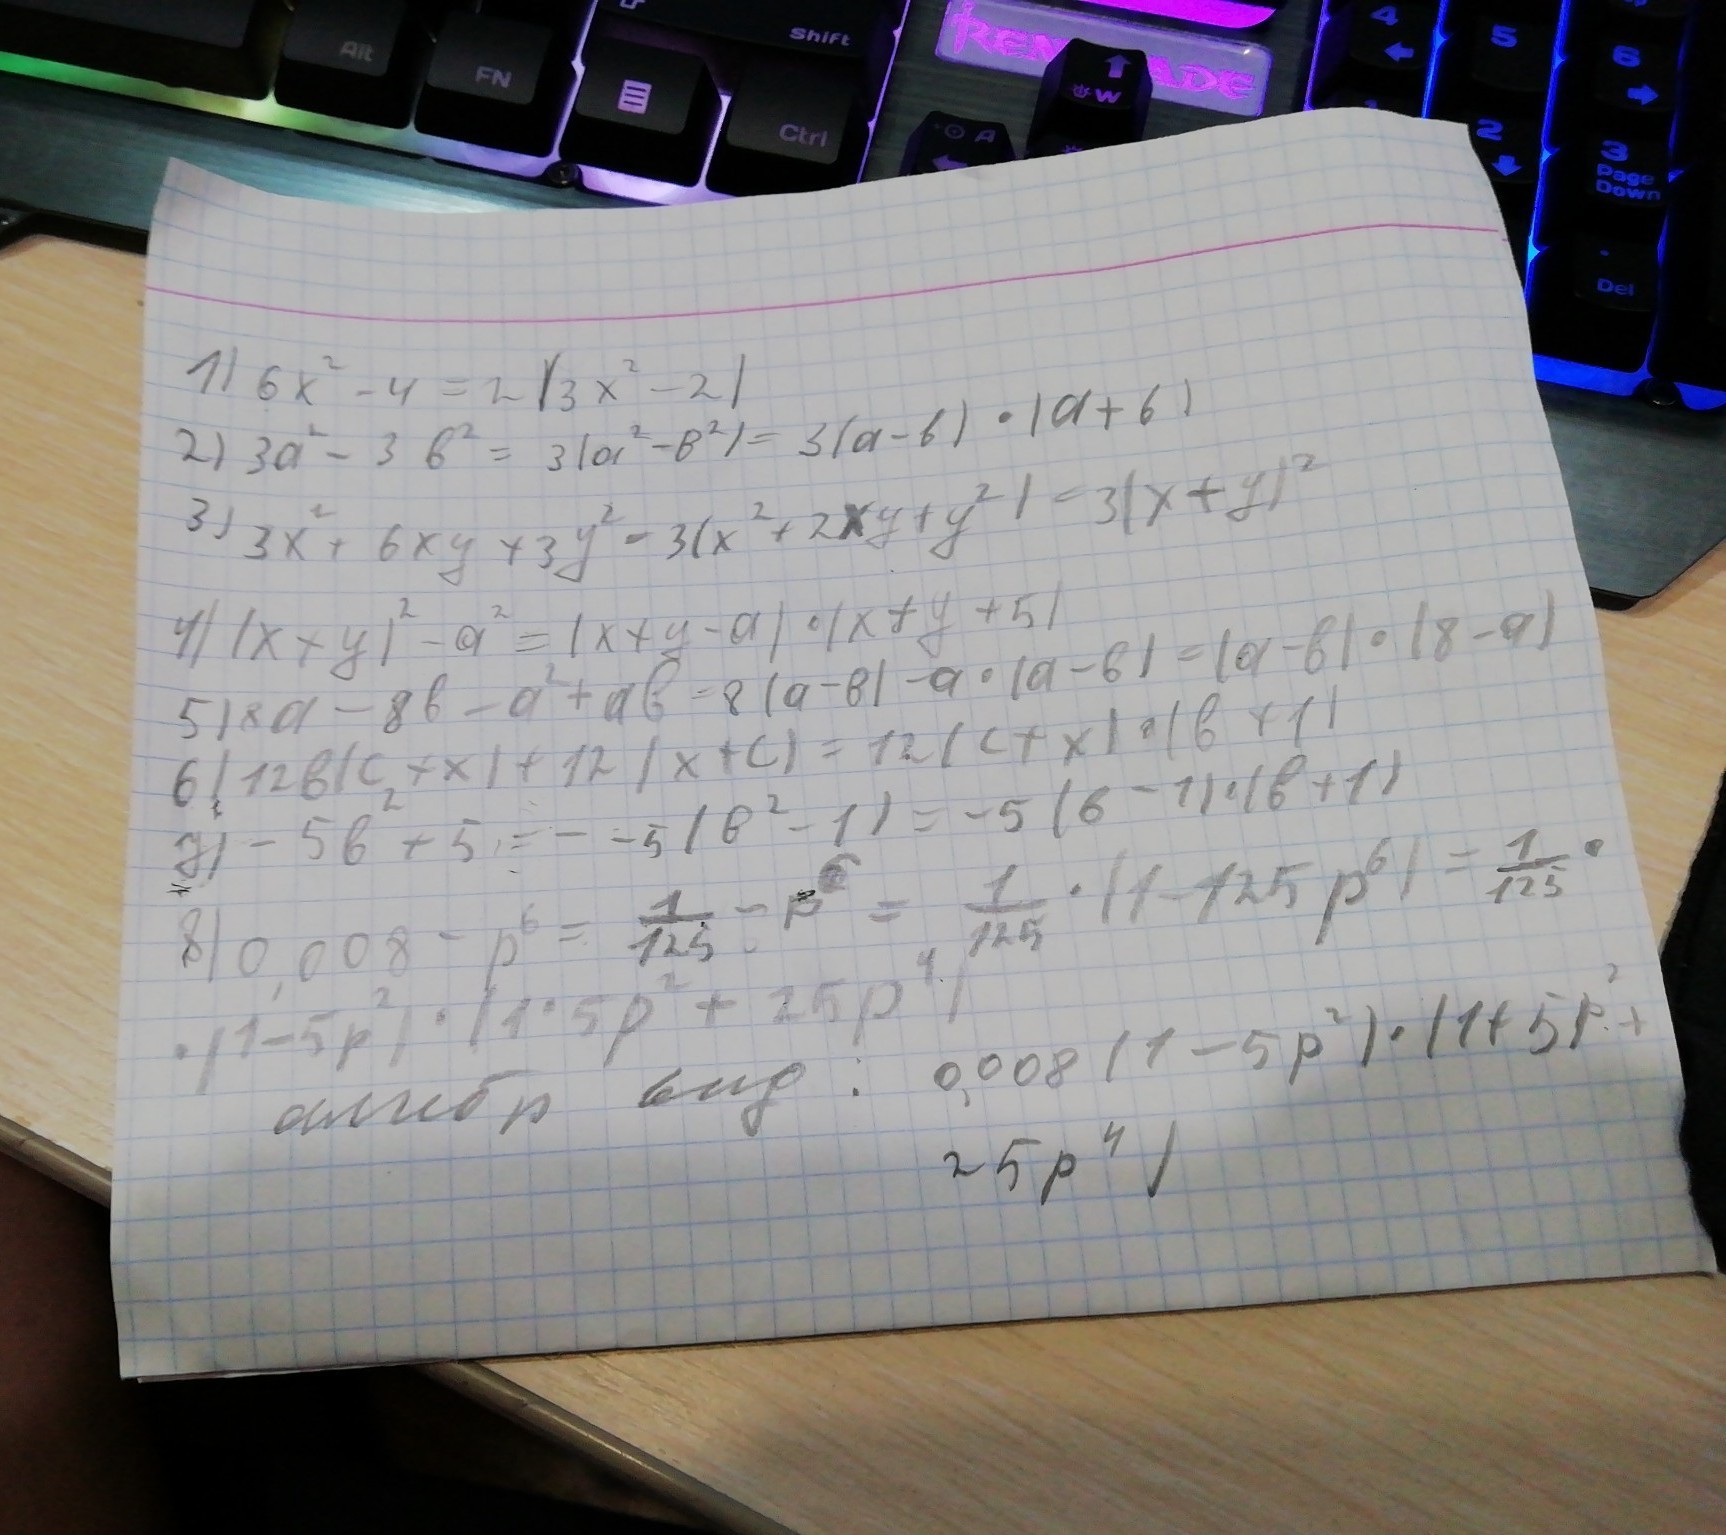 Shift
Alt
FN
Ctrl
W
A
4
5
6
2
3
Page
Down
Del
1) 6x² - 4 = 2(3x² - 2)
2) 3a² - 3b² = 3(a² - b²) = 3(a - b) · (a + b)
3) 3x² + 6xy + 3y² = 3(x² + 2xy + y²) = 3(x + y)²
4) (x + y)² - a² = (x + y - a) · (x + y + 5)
5) 8a - 8b - a² + ab = 8(a - b) - a · (a - b) = (a - b) · (8 - a)
6) 12b(c + x) + 12(x + c) = 12(c + x) · (b + 1)
7) - 5b² + 5 = - -5(b² - 1) = -5(b - 1) · (b + 1)
8) 0,008 - p⁶ = 1/125 - p⁶ = 1/125 · (1 - 125p⁶) = 1/125 ·
· (1 - 5p²) · (1 · 5p² + 25p⁴)
алгебр вид : 0,008 (1 - 5p²) · (1 + 5p² +
25p⁴)